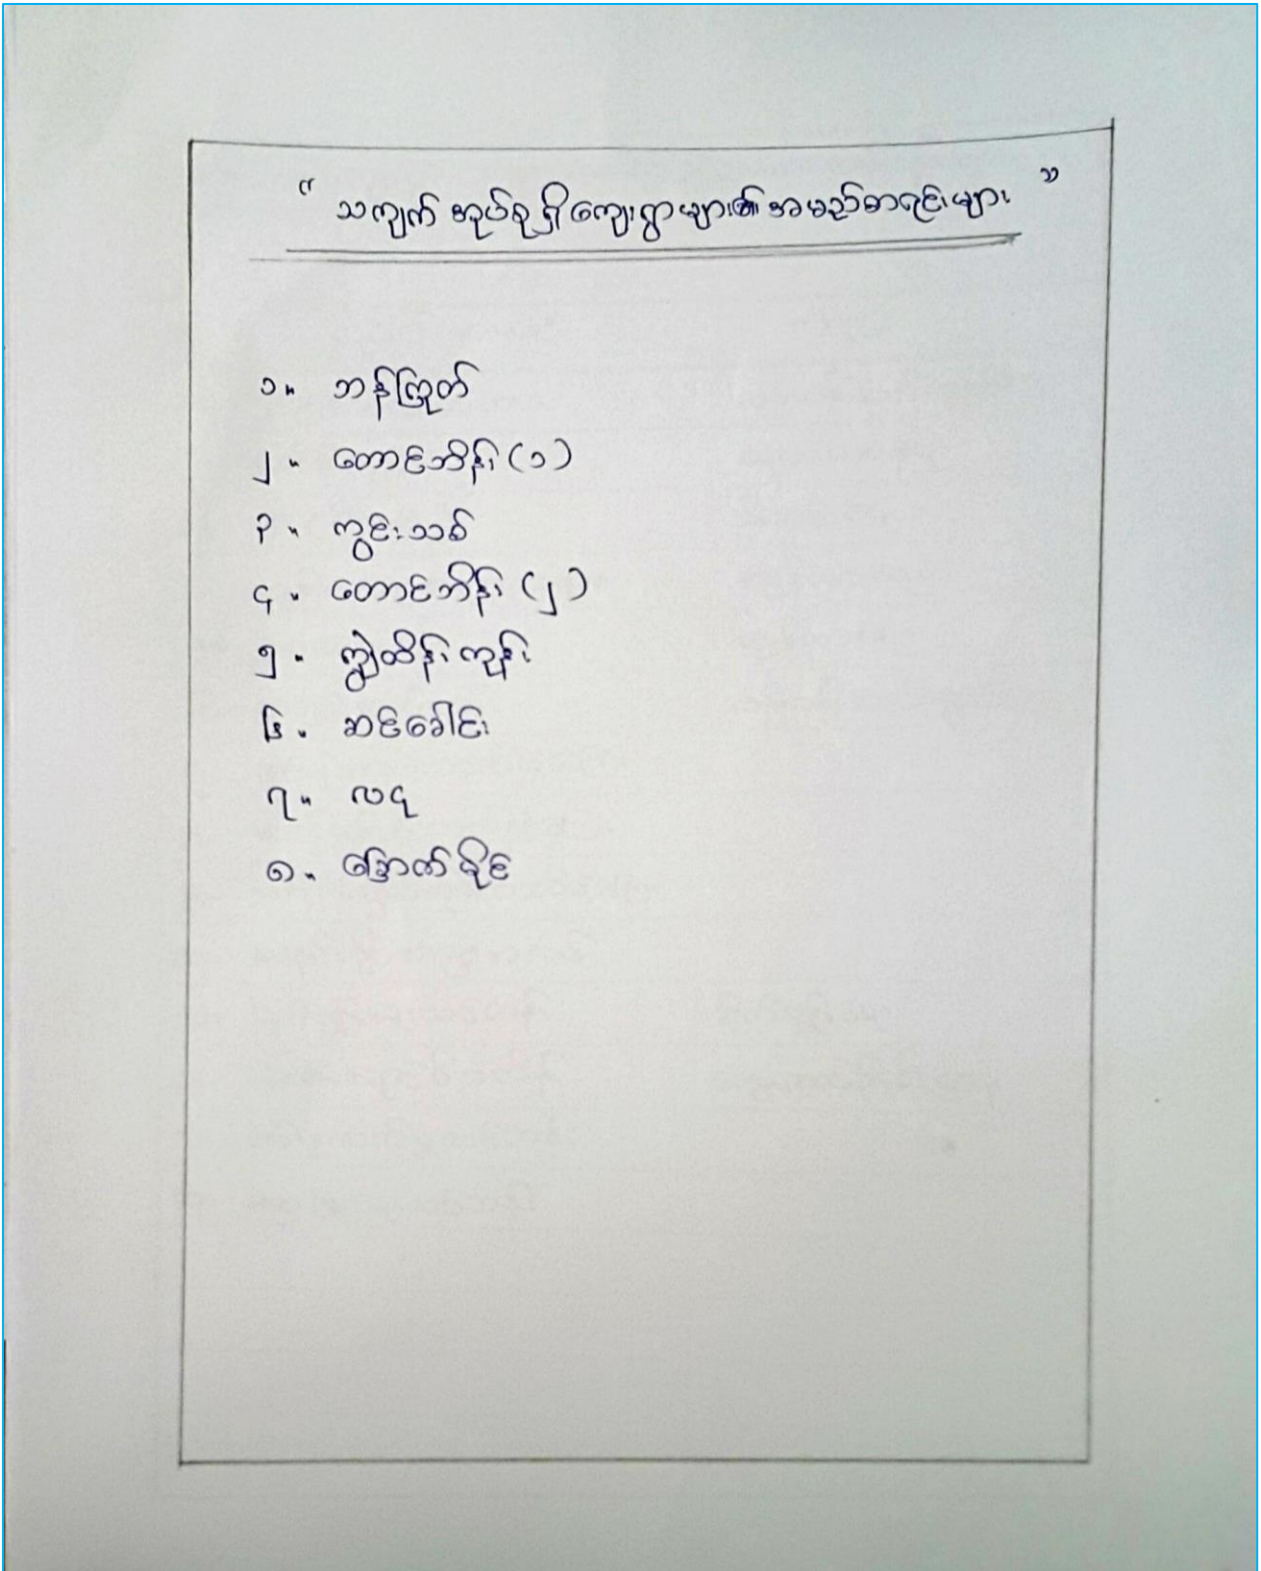 “ သကျက်အုပ်စုရှိကျေးရွာများ၏အမည်စာရင်းများ ”
၁။ ဘန်ကြုတ်
၂။ တောင်ဘိန်း (၁)
၃။ ကွင်းသစ်
၄။ တောင်ဘိန်း (၂)
၅။ ကျွဲထိန်းကုန်း
၆။ ဆင်ခေါင်း
၇။ လငု
၈။ အောက်စိုင်